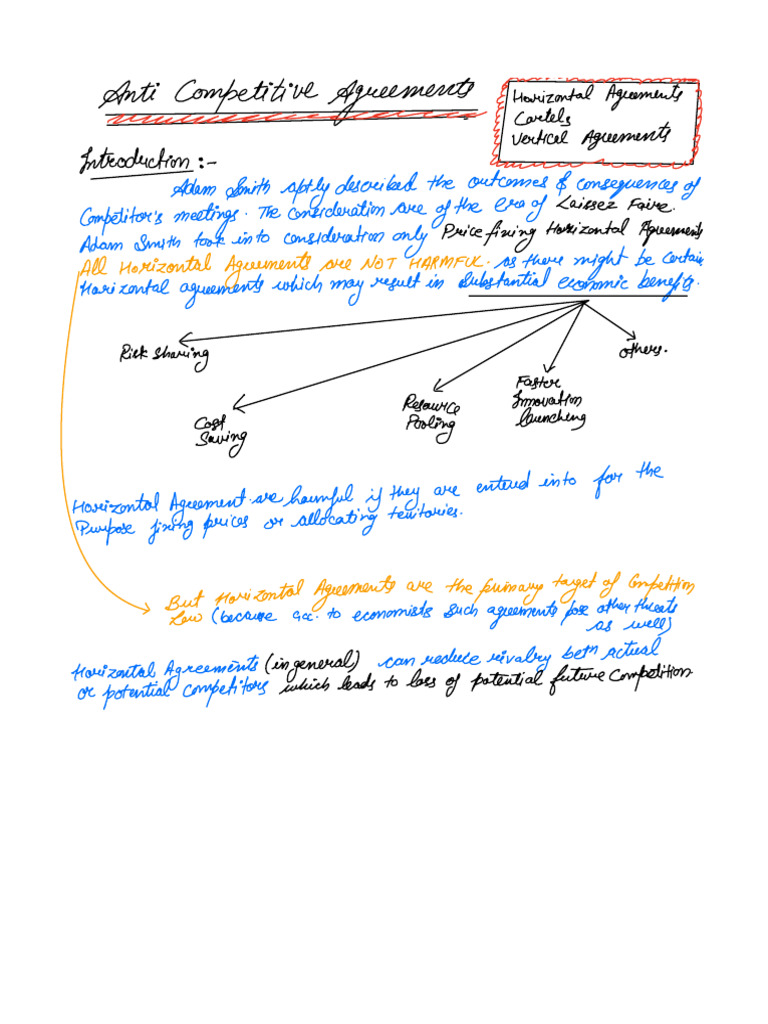 Anti Competitive Agreements
Horizontal Agreements
Cartels
Vertical Agreements
Introduction :-
Adam Smith aptly described the outcomes & consequences of
Competitor's meetings. The consideration are of the era of Laissez Faire.
Adam Smith took into consideration only Price fixing Horizontal Agreements
All Horizontal Agreements are NOT HARMFUL. as there might be certain
Horizontal agreements which may result in substantial economic benefits.
Risk Sharing
Cost
Saving
Resource
Pooling
Faster
Innovation
launching
others.
Horizontal Agreement are harmful if they are entered into for the
Purpose fixing prices or allocating territories.
But Horizontal Agreements are the primary target of Competition
Law (because acc. to economists such agreements pose other threats
as well)
Horizontal Agreements (in general) can reduce rivalry betn actual
or potential competitors which leads to loss of potential future Competition.